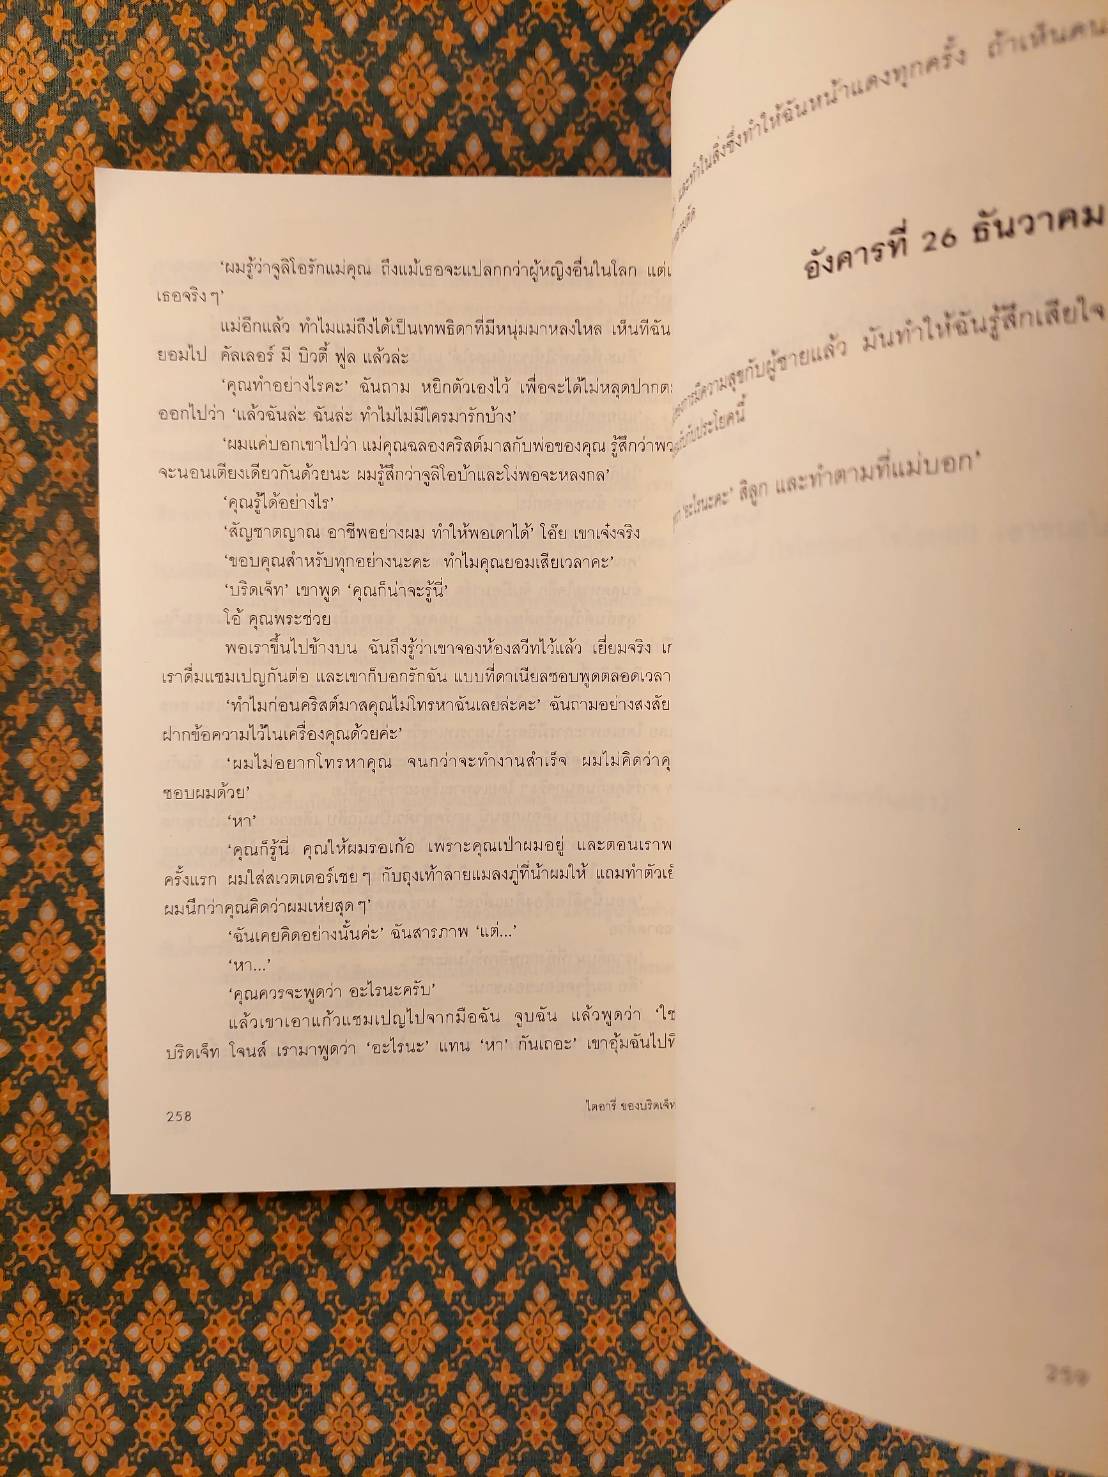 'ผมรู้ว่าจูลิโอรักแม่คุณ ถึงแม้เธอจะแปลกกว่าผู้หญิงอื่นในโลก
เธอจริงๆ'
แม่อีกแล้ว ทำไมแม่ถึงได้เป็นเทพธิดาที่มีหนุ่มมาหลงใหล เห็นทีฉัน
ยอมไป คัลเลอร์ มี บิวตี้ ฟูล แล้วล่ะ
'คุณทำอย่างไรคะ' ฉันถาม หยิกตัวเองไว้ เพื่อจะได้ไม่หลุดปาก
ออกไปว่า 'แล้วฉันล่ะ ฉันล่ะ ทำไมไม่มีใครมารักบ้าง'
'ผมแค่บอกเขาไปว่า แม่คุณฉลองคริสต์มาสกับพ่อของคุณ รู้สึกว่า
จะนอนเตียงเดียวกันด้วยนะ ผมรู้สึกว่าจูลิโอบ้าและโง่พอจะหลงกล'
'คุณรู้ได้อย่างไร'
'สัญชาตญาณ อาชีพอย่างผม ทำให้พอเดาได้' โอ๊ย เขาเจ๋งจริง
'ขอบคุณสำหรับทุกอย่างนะคะ ทำไมคุณยอมเสียเวลาคะ'
'บริดเจ็ท' เขาพูด 'คุณก็น่าจะรู้นี่'
โอ้ คุณพระช่วย
พอเราขึ้นไปข้างบน ฉันถึงรู้ว่าเขาจองห้องสวีทไว้แล้ว เยี่ยมจริง
เราดื่มแชมเปญกันต่อ และเขาก็บอกรักฉัน แบบที่ดาเนียลชอบพูดตลอดเวลา
'ทำไมก่อนคริสต์มาสคุณไม่โทรหาฉันเลยล่ะคะ' ฉันถามอย่างสงสัย
ฝากข้อความไว้ในเครื่องคุณด้วยค่ะ'
'ผมไม่อยากโทรหาคุณ จนกว่าจะทำงานสำเร็จ ผมไม่คิดว่า
ชอบผมด้วย'
'หา'
'คุณก็รู้นี่ คุณให้ผมรอเก้อ เพราะคุณเป่าผมอยู่ และตอนเรา
ครั้งแรก ผมใส่สเวตเตอร์เชยๆ กับถุงเท้าลายแมลงภู่ที่น้าผมให้ แถมทำตัว
ผมนึกว่าคุณคิดว่าผมเห่ยสุดๆ'
'ฉันเคยคิดอย่างนั้นค่ะ' ฉันสารภาพ 'แต่...'
'หา...'
'คุณควรจะพูดว่า อะไรนะครับ'
แล้วเขาเอาแก้วแชมเปญไปจากมือฉัน จูบฉัน แล้วพูดว่า
บริดเจ็ท โจนส์ เรามาพูดว่า 'อะไรนะ' แทน 'หา' กันเถอะ' เขาอุ้มฉันไป
258
ไดอารี ของบริดเจ็ท
และทำในสิ่งซึ่งทำให้ฉันหน้าแดงทุกครั้ง ถ้าเห็นคน
อังคารที่ 26 ธันวาคม
การมีความสุขกับผู้ชายแล้ว มันทำให้ฉันรู้สึกเสียใจ
กับประโยคนี้
'อะไรนะคะ' สิลูก และทำตามที่แม่บอก'
259